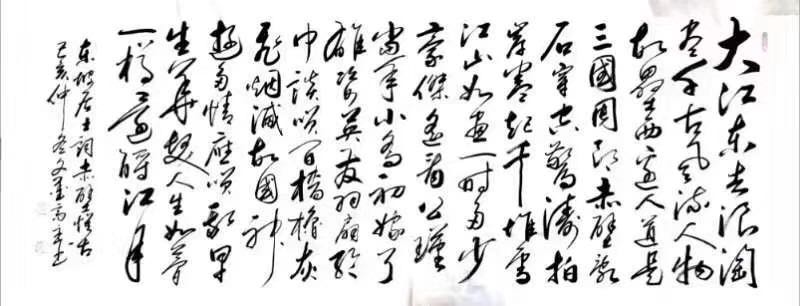 大江东去浪淘
尽千古风流人物
故垒西边人道是
三國周郎赤壁乱
石穿空惊涛拍
岸卷起千堆雪
江山如画一时多少
豪傑遥想公瑾
当年小乔初嫁了
雄姿英发羽扇纶
巾谈笑间樯橹灰
飞烟灭故國神
遊多情应笑我早
生华发人生如梦
一樽还酹江月
东坡居士词赤壁怀古
己亥仲冬文